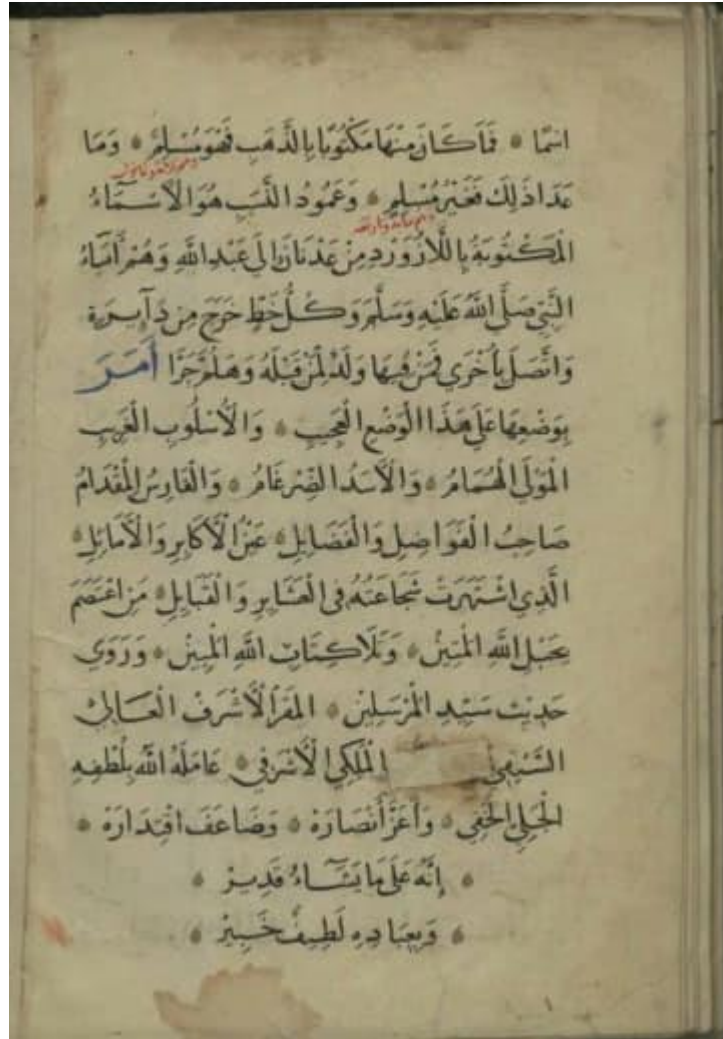 اسمًا ۞ فَمَا كَانَ مِنْهَا مَكْتُوبًا بِالذَّهَبِ فَهُوَ مُسْلِمٌ ۞ وَمَا
عَدَا ذَلِكَ فَغَيْرُ مُسْلِمٍ ۞ وَعَمُودُ النَّسَبِ هُوَ الْأَسْمَآءُ
الْمَكْتُوبَةُ بِاللَّازَوَرْدِ مِنْ عَدْنَانَ إِلَى عَبْدِ اللَّهِ وَهُمْ آبَاءُ
النَّبِيِّ صَلَّى اللَّهُ عَلَيْهِ وَسَلَّمَ وَكُلُّ خَطٍّ خَرَجَ مِنْ دَآيِرَةٍ
وَاتَّصَلَ بِأُخْرَي فَمَنْ فِيهَا وَلَدٌ لِمَنْ قَبْلَهُ وَهَلُمَّ جَرًّا أَمَرَ
بِوَضْعِهَا عَلَى هَذَا الْوَضْعِ الْعَجِيبِ ۞ وَالْأُسْلُوبِ الْغَرِيبِ
الْمَوْلَى الْهُمَامُ ۞ وَالْأَسَدُ الضِّرْغَامُ ۞ وَالْفَارِسُ الْمِقْدَامُ
صَاحِبُ الْفَوَاضِلِ وَالْفَضَايِلِ ۞ عَيْنُ الْأَكَابِرِ وَالْأَمَاثِلِ ۞
الَّذِي اشْتَهَرَتْ شَجَاعَتُهُ فِي الْعَشَايِرِ وَالْقَبَايِلِ ۞ مَنِ اعْتَصَمَ
بِحَبْلِ اللَّهِ الْمَتِينْ ۞ وَتَلَا كِتَابَ اللَّهِ الْمُبِينْ ۞ وَرَوَى
حَدِيثَ سَيِّدِ الْمُرْسَلِينْ ۞ الْمَقَرُّ الْأَشْرَفُ الْعَالِي
السَّيْفِيُّ الْمَلَكِي الْأَشْرَفِي ۞ عَامَلَهُ اللَّهُ بِلُطْفِهِ
الْجَلِيِّ الْخَفِي ۞ وَأَعَزَّ أَنْصَارَهْ ۞ وَضَاعَفَ اقْتِدَارَهْ ۞
۞ إِنَّهُ عَلَى مَا يَشَآءُ قَدِيرْ ۞
۞ وَبِعِبَادِهِ لَطِيفٌ خَبِيرْ ۞